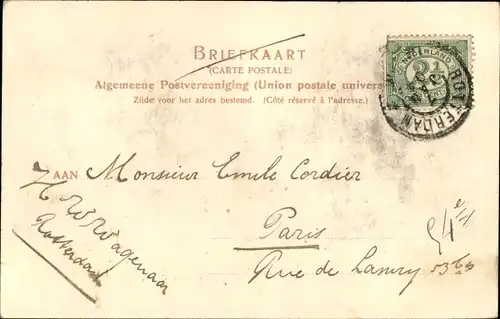 BRIEFKAART
(CARTE POSTALE)
Algemeene Postvereeniging (Union postale univers
Zijde voor het adres bestemd. (Côté réservé à l'adresse.)
NEDERLAND
ROTTERDAM
AAN Monsieur Emile Cordier
Paris
Rue de Lancry 53 bis
H. Wagenaar
Rotterdam